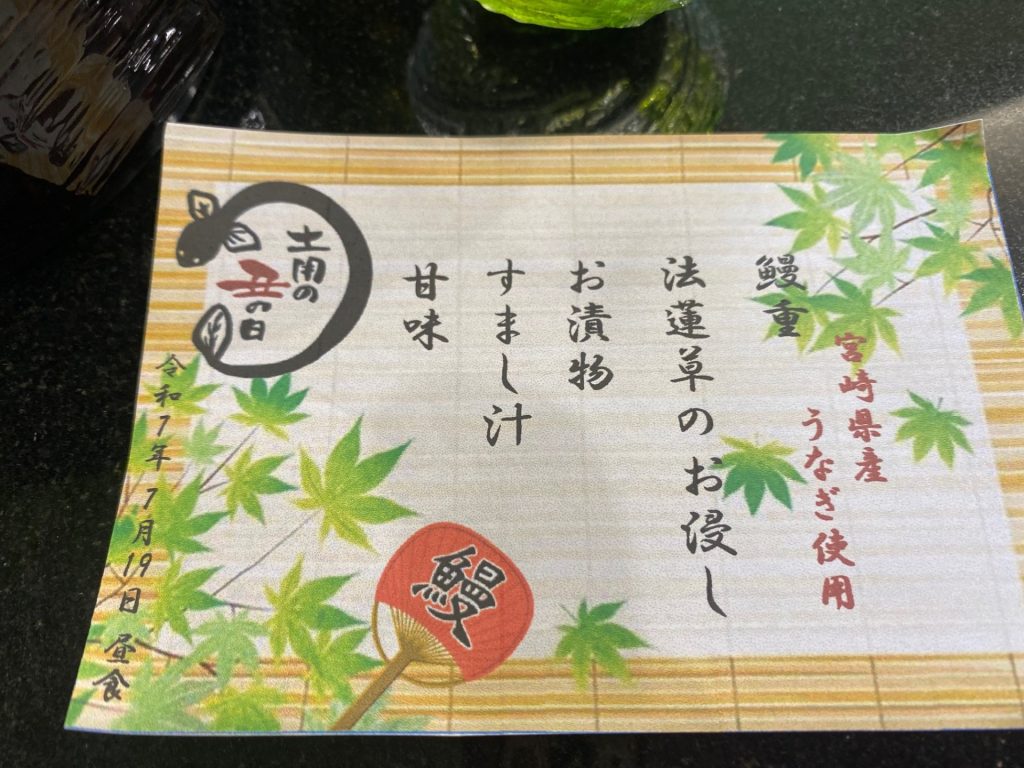 鰻重
宮崎県産
うなぎ使用
法蓮草のお浸し
お漬物
すまし汁
甘味
土用の
丑の日
令和7年 7月19日 昼食
鰻